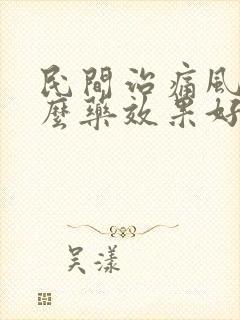 民間治痛風
麼藥效果好
吴漾